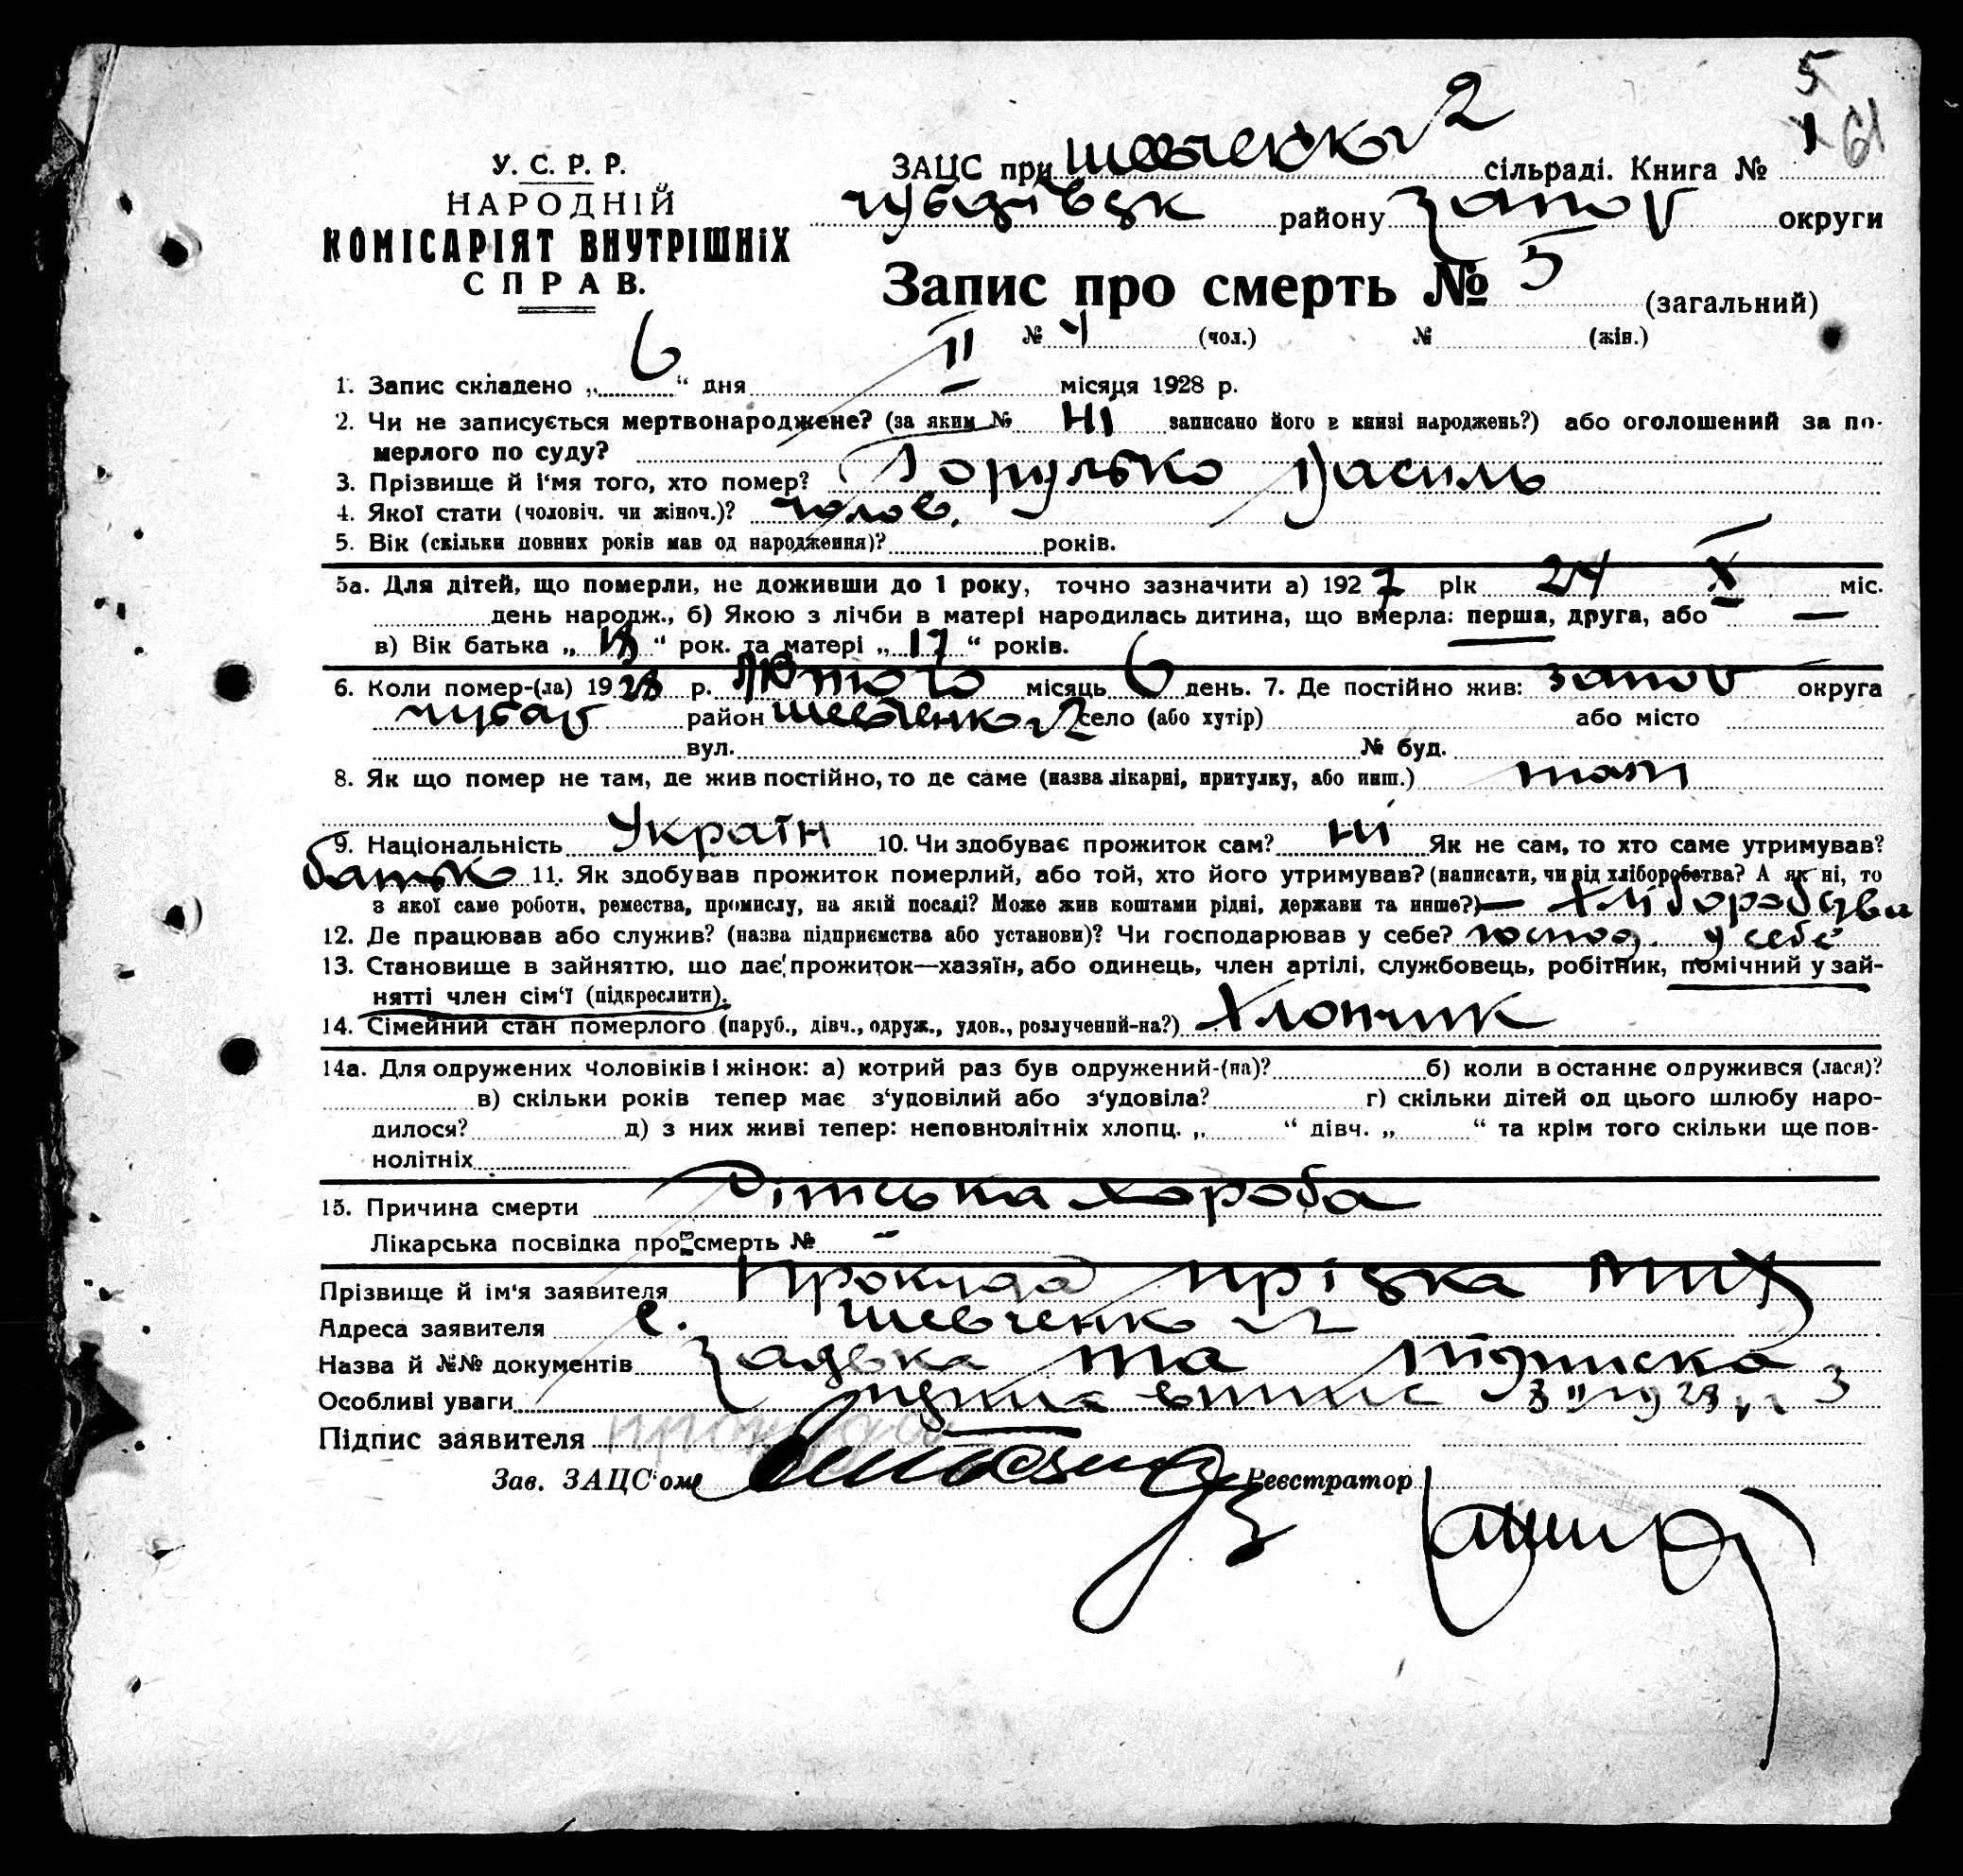 5
1 61
У. С. Р. Р.
НАРОДНІЙ
КОМІСАРІЯТ ВНУТРІШНІХ
СПРАВ.
ЗАЦС при Шевченко 2 сільраді. Книга №
району Запор округи
Запис про смерть № 5 (загальний)
№ 4 (чол.) № (жін.)
1. Запис складено „ 6 “ дня II місяця 1928 р.
2. Чи не записується мертвонароджене? (за яким № Ні записано його в книзі народжень?) або оголошений за по-
мерлого по суду?
3. Прізвище й і'мя того, хто помер? Горулько Василь
4. Якої стати (чоловіч. чи жіноч.)? чолов.
5. Вік (скільки повних років мав од народження)? років.
5а. Для дітей, що померли, не доживши до 1 року, точно зазначити а) 1927 рік 24 X міс.
день народж., б) Якою з лічби в матері народилась дитина, що вмерла: перша, друга, або —
в) Вік батька „ 18 “ рок. та матері „ 17 “ років.
6. Коли помер-(ла) 1928 р. Лютого місяць 6 день. 7. Де постійно жив: Запор округа
чубар район Шевченко 2 село (або хутір) або місто
вул. № буд.
8. Як що помер не там, де жив постійно, то де саме (назва лікарні, притулку, або инш.) там
9. Національність Україн 10. Чи здобуває прожиток сам? ні Як не сам, то хто саме утримував?
батько 11. Як здобував прожиток померлий, або той, хто його утримував? (написати, чи від хліборобства? А як ні, то
з якої саме роботи, ремества, промислу, на якій посаді? Може жив коштами рідні, держави та инше?) — хліборобства
12. Де працював або служив? (назва підприємства або установи)? Чи господарював у себе? господ. у себе
13. Становище в зайняттю, що дає прожиток—хазяїн, або одинець, член артілі, службовець, робітник, помічний у зай-
нятті член сім'ї (підкреслити).
14. Сімейний стан померлого (паруб., дівч., одруж., удов., розлучений-на?) Хлопчик
14а. Для одружених чоловіків і жінок: а) котрий раз був одружений-(на)? б) коли в останнє одружився (лася)?
в) скільки років тепер має з'удовілий або з'удовіла? г) скільки дітей од цього шлюбу наро-
дилося? д) з них живі тепер: неповнолітніх хлопц. „ “ дівч. „ “ та крім того скільки ще пов-
нолітніх
15. Причина смерти Дітська хороба
Лікарська посвідка про смерть № -
Прізвище й ім'я заявителя Прокуда
Адреса заявителя с. Шевченко 2
Назва й №№ документів Заявка та підписка
Особливі уваги
Підпис заявителя Прокуда
Зав. ЗАЦС'ом Реєстратор